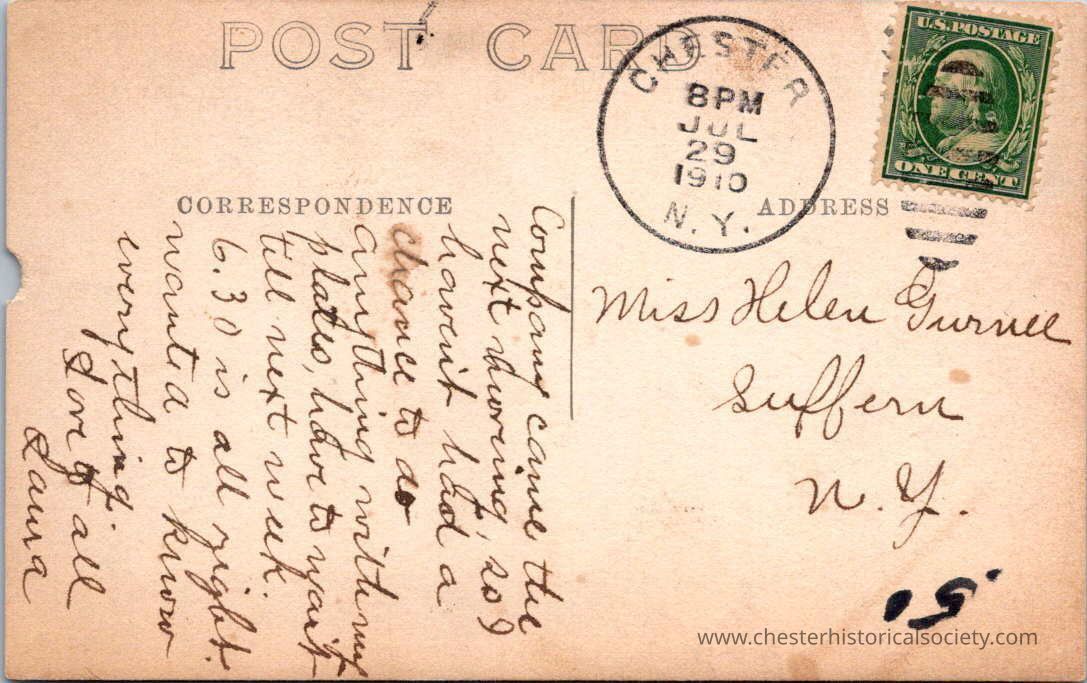 POST CARD
CHESTER
8PM
JUL
29
1910
N.Y.
U.S.POSTAGE
ONE CENT
CORRESPONDENCE
ADDRESS
Company came the
next morning, so I
havent had a
chance to do
anything with my
plates, have to wait
till next week.
6.30 is all right.
wanted to know
everything.
Love to all
Laura
Miss Helen Gurnee
Suffern
N.Y.
www.chesterhistoricalsociety.com